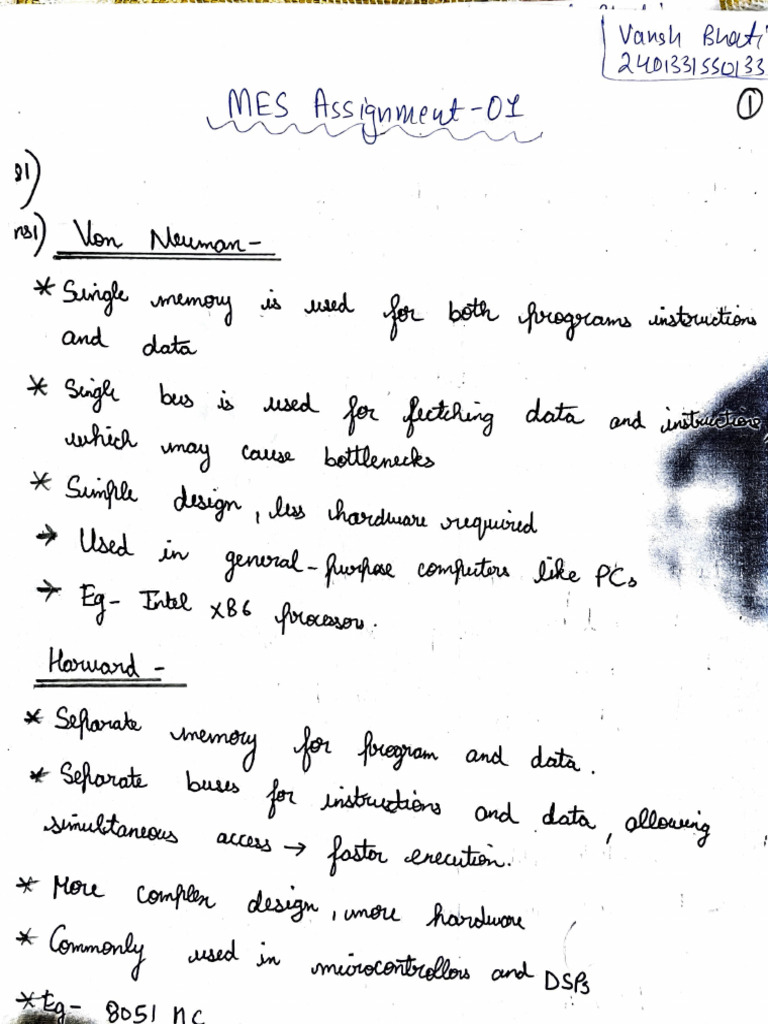 Vansh Bhati
2401331550133
MES Assignment-01
①
Von Neuman-
* Single memory is used for both programs instructions
and data
* Single bus is used for fectching data and instructions,
which may cause bottlenecks
* Simple design, less hardware required
→ Used in general-purpose computers like PCs
→ Eg- Intel x86 processors.
Harward -
* Separate memory for program and data.
* Separate buses for instructions and data, allowing
simultaneous access → faster execution.
* More complex design, more hardware
* Commonly used in microcontrollors and DSPs
* Eg- 8051